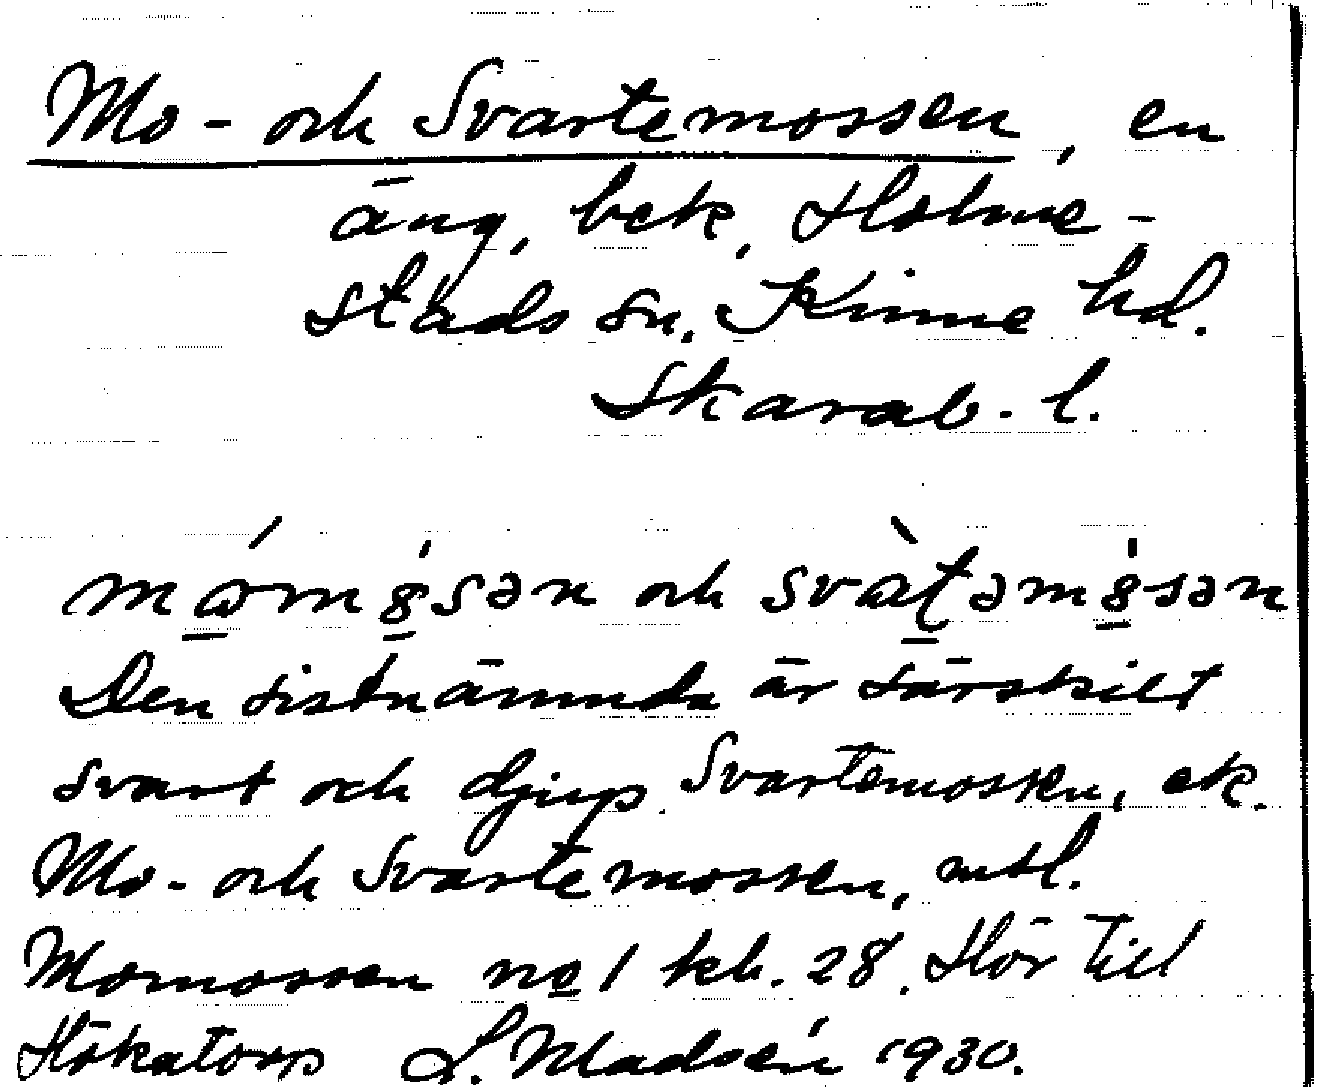 Mo- och Svartemossen, en
äng, bek, Holme-
stads sn, Kinne hd.
Skarab. l.
och
Den sistnämnda är särskilt
svart och djup. Svartemossen, ek.
Mo- och Svartemossen, mtl.
Momossen no 1 kb. 28. Hör till
Hökatorp L. Madsén 1930.